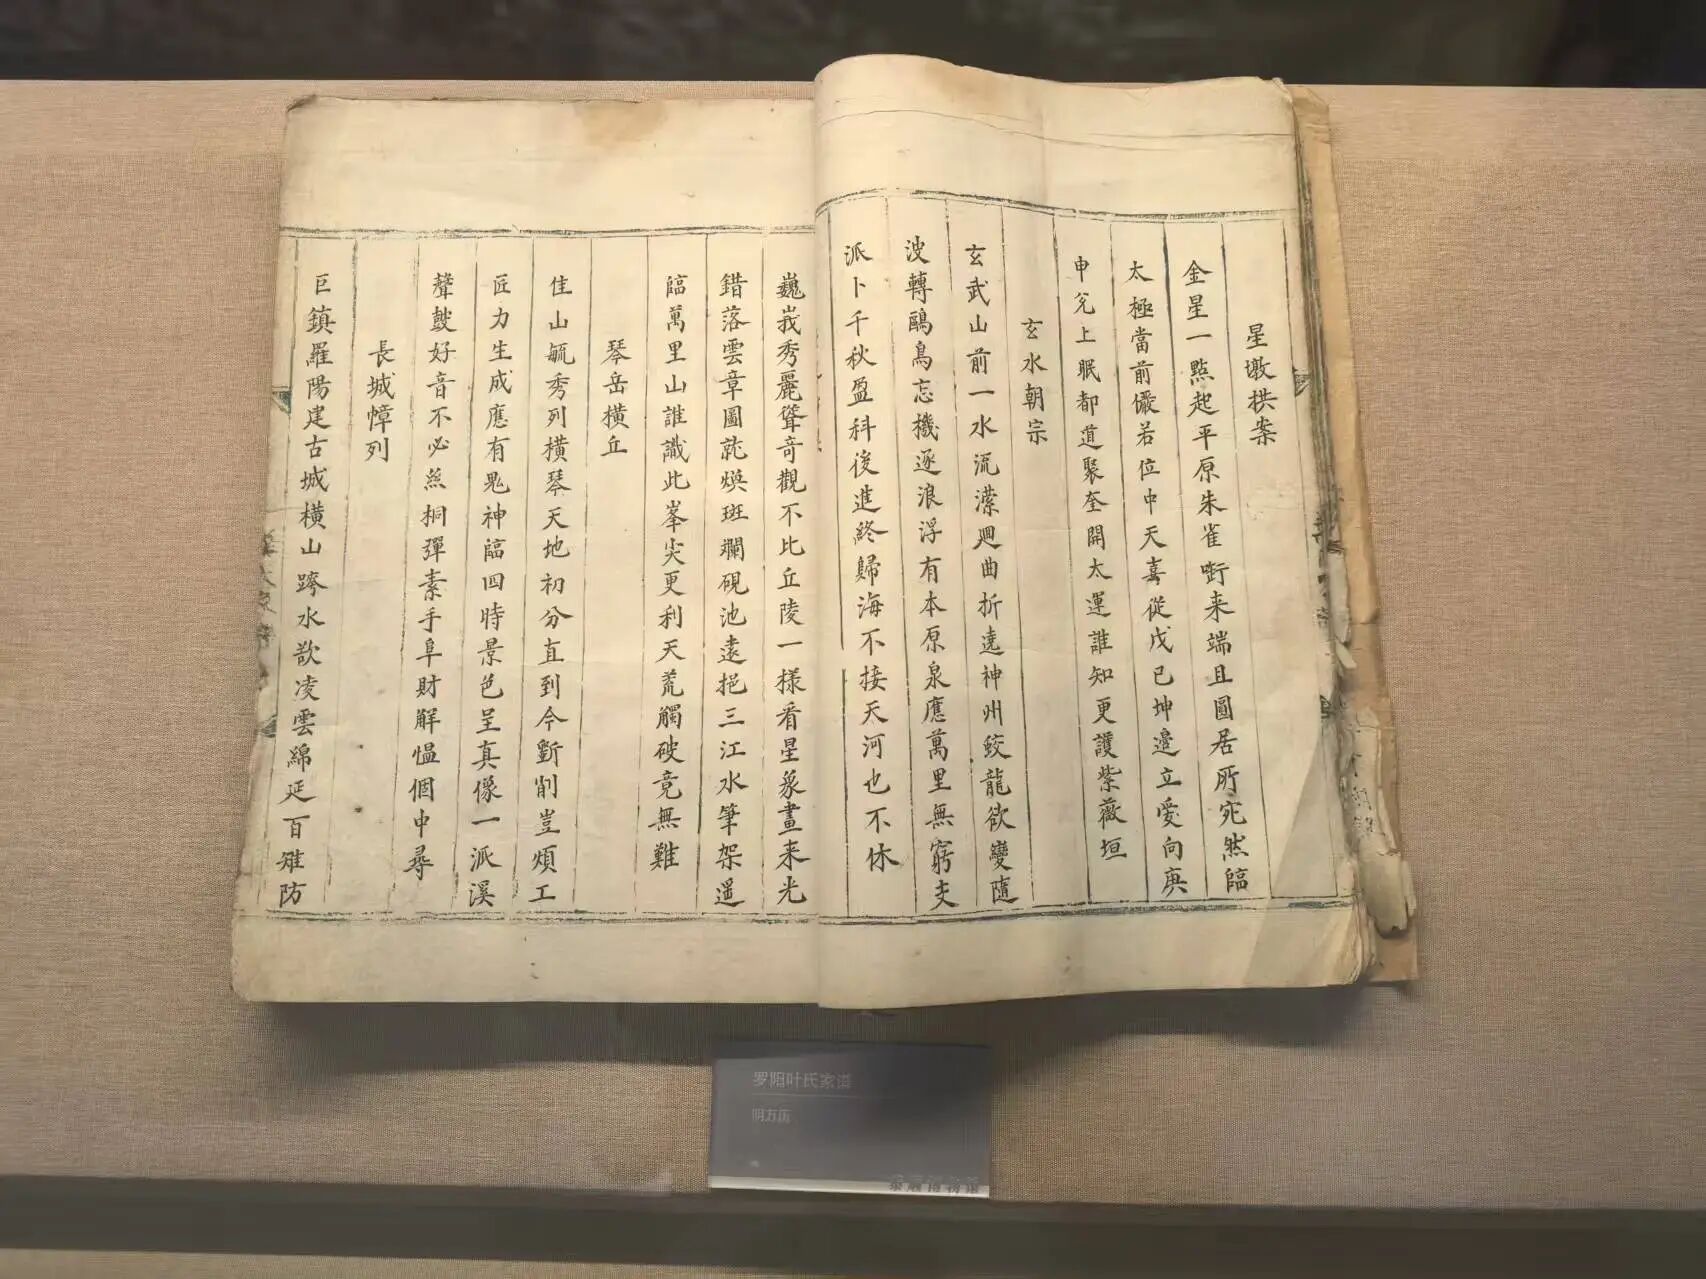 星墩拱案
金星一點起平原朱雀啣来端且圓居所宛然臨
太極當前儼若位中天喜從戊己坤邉立愛向庚
申兊上眠都道聚奎開太運誰知更護紫薇垣
玄水朝宗
玄武山前一水流瀠廻曲折遶神州蛟龍欲變隨
波轉鷗鳥忘機逐浪浮有本原泉應萬里無窮支
派卜千秋盈科後進終歸海不接天河也不休
巍峩秀麗聳奇觀不比丘陵一樣看星象畫来光
錯落雲章圖就煥斑斕硯池遠挹三江水筆架遥
臨萬里山誰識此峯尖更利天荒觸破竟無難
琴岳橫丘
佳山毓秀列橫琴天地初分直到今斵削豈煩工
匠力生成應有鬼神臨四時景色呈真像一派溪
聲鼓好音不必絲桐彈素手阜財解愠個中尋
長城幛列
巨鎮羅陽建古城橫山跨水欲凌雲綿延百雉防
罗阳叶氏家谱
明万历